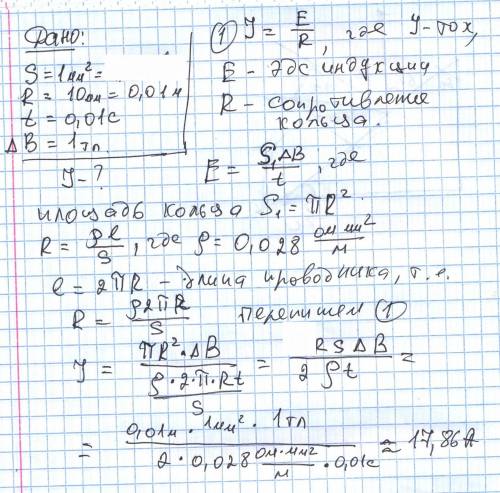 Дано:
S = 1мм² =
R = 10мм = 0,01м
t = 0,01с
ΔB = 1тл.
У - ?
① У = E/R, где У - ток,
E - эдс индукции
R - сопротивление
кольца.
E = S₁ΔB/t, где
площадь кольца S₁ = πR².
R = ρl/S, где ρ = 0,028 ом мм²/м
l = 2πR - длина проводника, т.е.
R = ρ2πR/S перепишем ①
У = πR²·ΔB / (ρ·2·π·Rt/S) = RSΔB / 2ρt =
= 0,01м · 1мм² · 1тл / 2 · 0,028 ом·мм²/м · 0,01с ≈ 17,86А